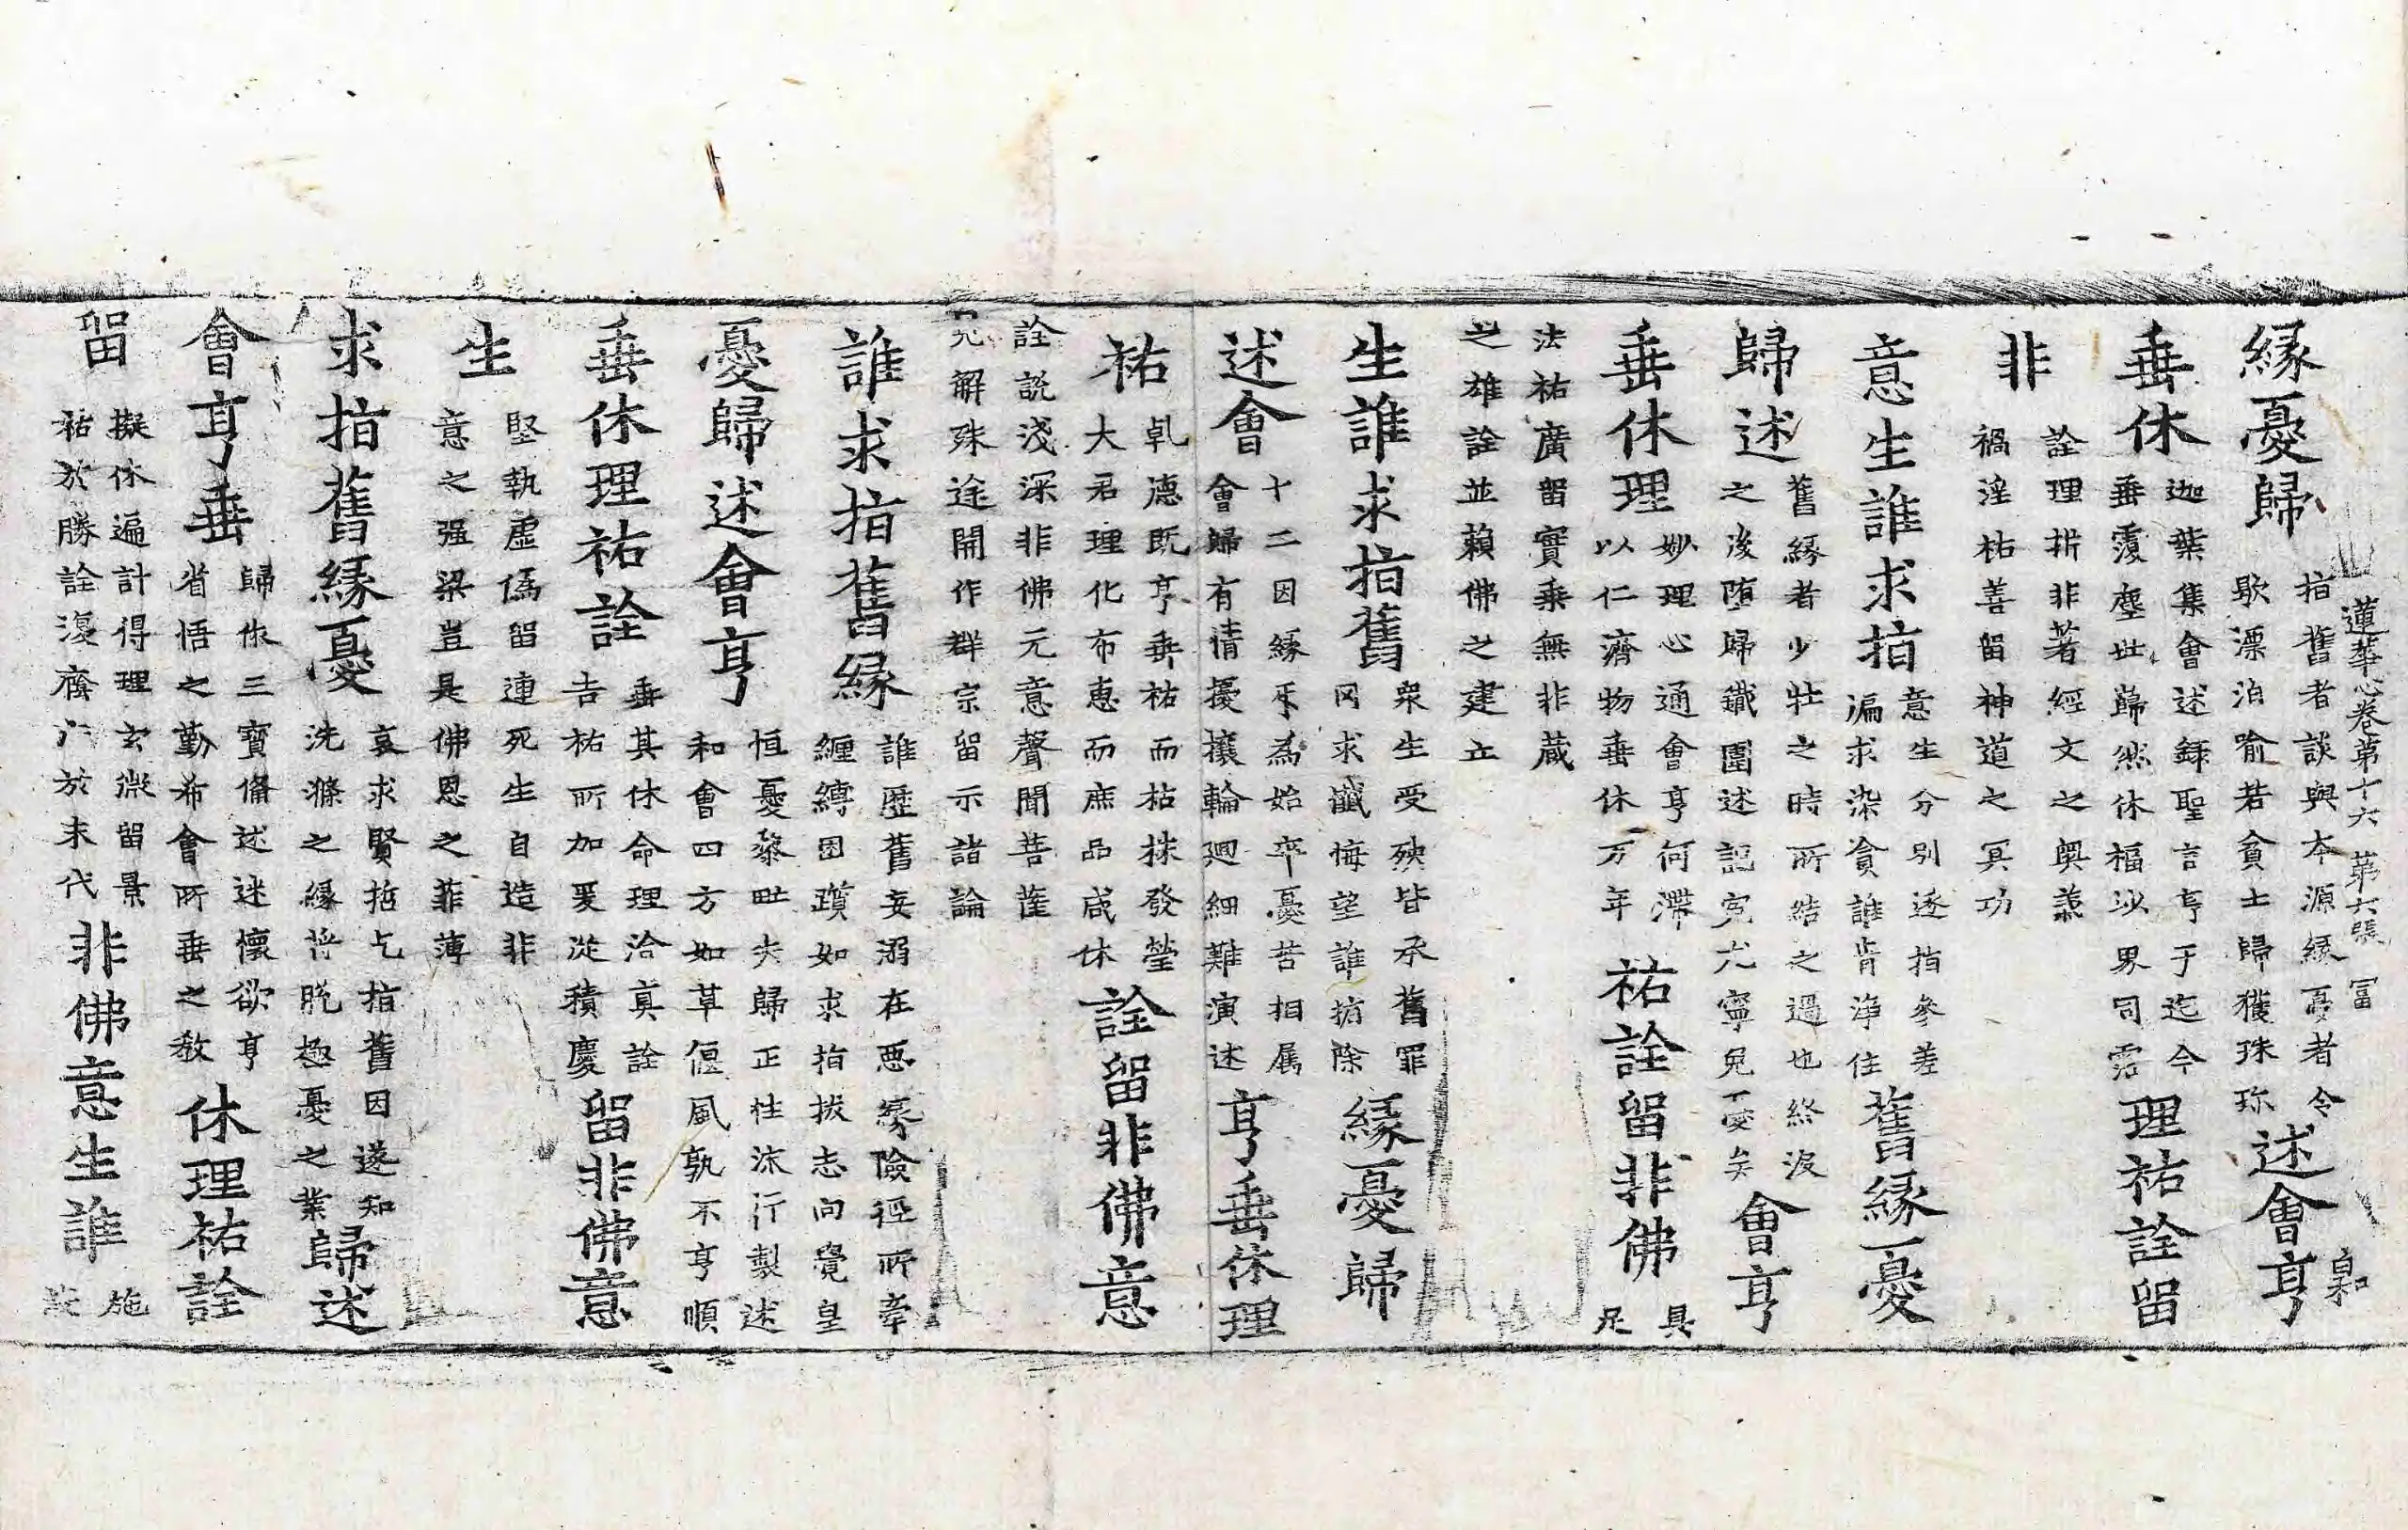 蓮華心卷第十六 第六張 冨
緣憂歸
指舊者談與本源緣憂者令
歇漂泊喻若貧士歸獲珠珎
述會亨
垂休
迦葉集會述録聖言亨于迄今
垂覆塵世歸然休福沙界司
理祐詮留
非
詮理折非著經文之奧義
禍淫祐善留神道之冥功
意生誰求指
意生分別逐指參差
徧求染貪誰肯淨住
舊緣憂
歸述
舊緣者少壯之時所結之過也終沒
之後堕歸鐵圍述記寃尤寧免憂矣
會亨
垂休理
妙理心通會亨何滯
以仁濟物垂休万年
祐詮留非佛
具
足
法祐廣留實乗無非蔵
之雄詮並賴佛之建立
生誰求指舊
衆生受殃皆承舊罪
冈求懺悔望誰指除
緣憂歸
述會
十二因緣 為始卒憂苦相属
會歸有情擾攘輪廻細難演述
亨垂休理
祐
乹德既亨垂祐而枯株發瑩
大君理化布惠而庶品咸休
詮留非佛意
詮說淺深非佛元意聲聞菩薩
見解殊途開作群宗留示諸論
誰求指舊緣
誰歴舊妄溺在惡緣險徑所牽
纏縛困躓如求指拔志向覺皇
憂歸述會亨
恒憂黎甿夫歸正性沐行製述
和會四方如草偃風孰不亨順
垂休理祐詮
垂其休命理洽真詮
吉祐所加爰從積慶
留非佛意
生
堅執虛僞留連死生自造非
意之强梁豈是佛恩之菲薄
求指舊緣憂
哀求賢哲乞指舊因遂知
洗滌之緣 脫極憂之業
歸述
會亨垂
歸依三寶備述迷懷欲亨
省悟之勤希會所垂之教
休理祐詮
留
擬休遍計得理玄微留景
祐於勝詮漫濟 於末代
非佛意生誰
施